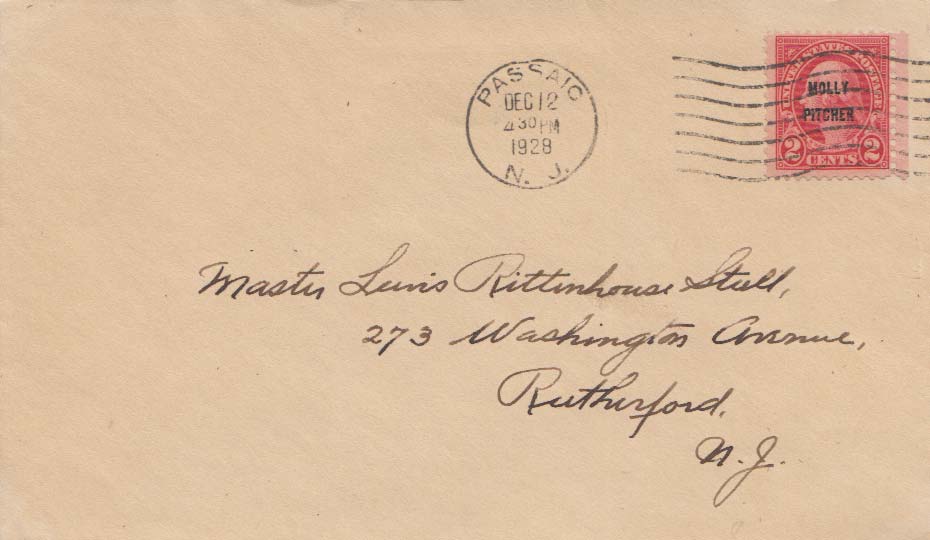 PASSAIC
DEC 12
4 30 PM
1928
N. J.
UNITED STATES POSTAGE
MOLLY
PITCHER
2 CENTS 2
Master Lewis Rittenhouse Stull,
273 Washington Avenue,
Rutherford,
N. J.